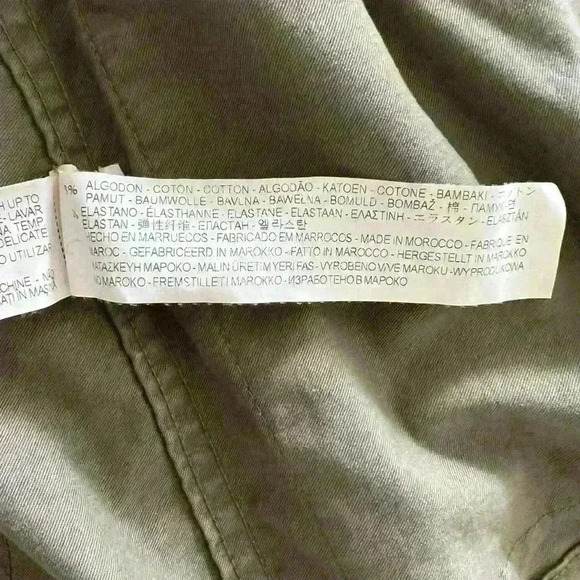 H UP TO
LAVAR
TEMP
DELICATE
O UTILIZAR
CHINE - 
ATI IN MAS
ALGODON - COTON - COTTON - ALGODÃO - KATOEN - COTONE - BAMBAKI - コットン
PAMUT - BAUMWOLLE - BAVLNA - BAWEŁNA - BOMULD - BOMBAŽ - 棉 -
ELASTANO - ÉLASTHANNE - ELASTANE - ELASTAAN - ΕΛΑΣΤΙΝΗ - エラスタン - ELASZTÁN
ELASTAN - 弹性纤维 - ЕПАСТАН - 엘라스탄
HECHO EN MARRUECOS - FABRICADO EM MARROCOS - MADE IN MOROCCO - FABRIQUÉ EN
MAROC - GEFABRICEERD IN MAROKKO - FATTO IN MAROCCO - HERGESTELLT IN MAROKKO
ΚΑΤΑΣΚΕΥΗ ΜΑΡΟΚΟ - MALIN ÜRETIM YERI FAS - VYROBENO V/VE MAROKU - WYPRODUKOWANO
MAROKO - FREMSTILLET I MAROKKO - ИЗРАБОТЕНО В МАРОКО